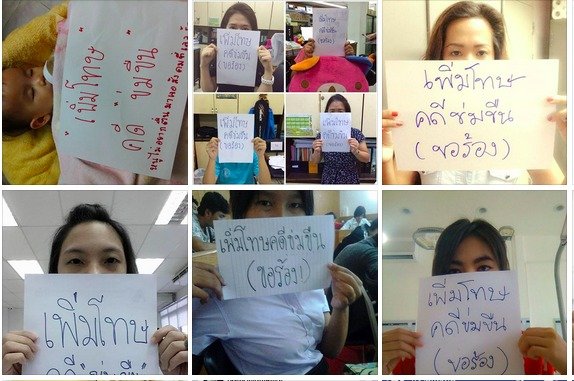 " เพิ่มโทษ "
คดี "ข่มขืน"
หนูไม่อยากตื่นมาเจอสังคมที่
เพิ่มโทษ
คดีข่มขืน
(ขอร้อง)
เพิ่มโทษ
คดีข่มขืน
(ขอร้อง)
เพิ่มโทษ
คดีข่มขืน
(ขอร้อง)
เพิ่มโทษ
คดีข่มขืน
(ขอร้อง)
เพิ่มโทษ
คดีข่มขืน
(ขอร้อง)
เพิ่มโทษ
คดีข่มขืน
เพิ่มโทษคดีข่มขืน
(ขอร้อง!)
เพิ่มโทษ
คดีข่มขืน
(ขอร้อง)